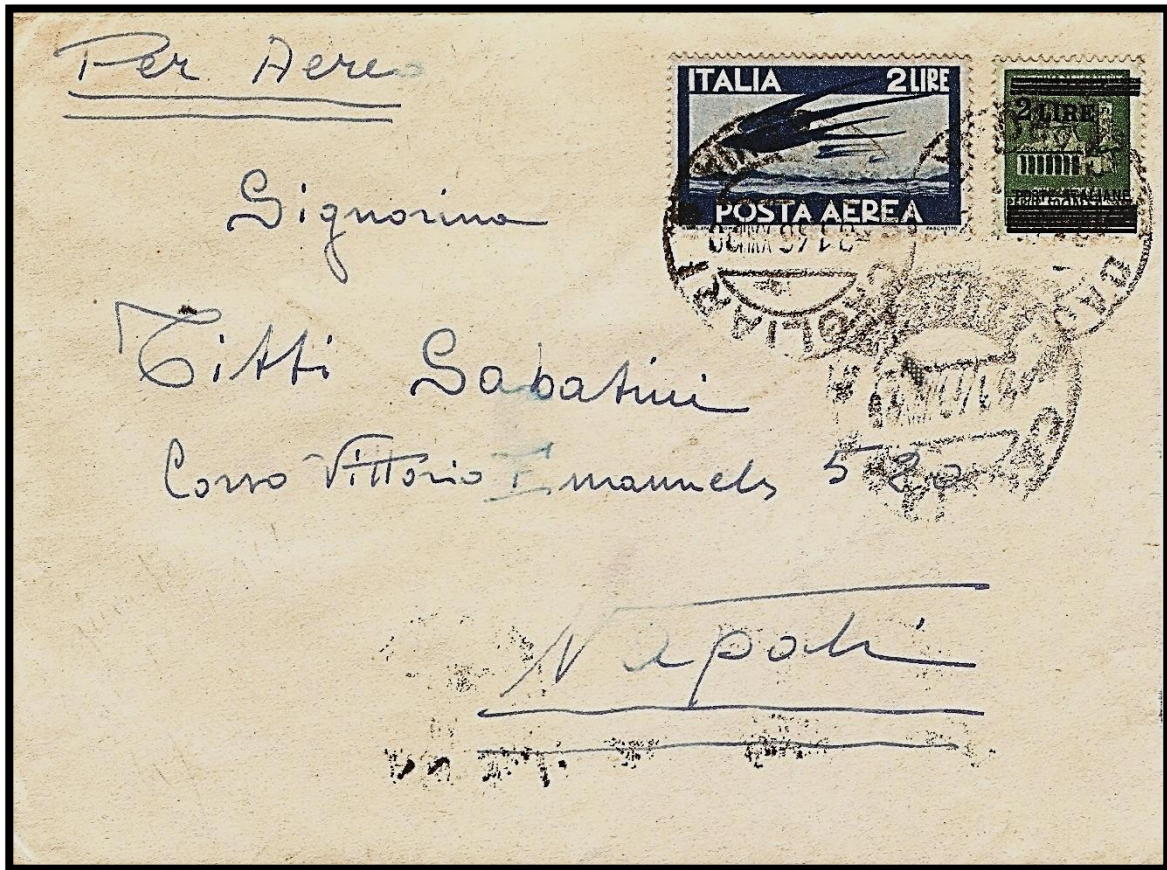 Per Aereo
ITALIA 2 LIRE
POSTA AEREA
2 LIRE
CAGLIARI
Signorina
Titti Sabatini
Corso Vittorio Emanuele 520
Napoli